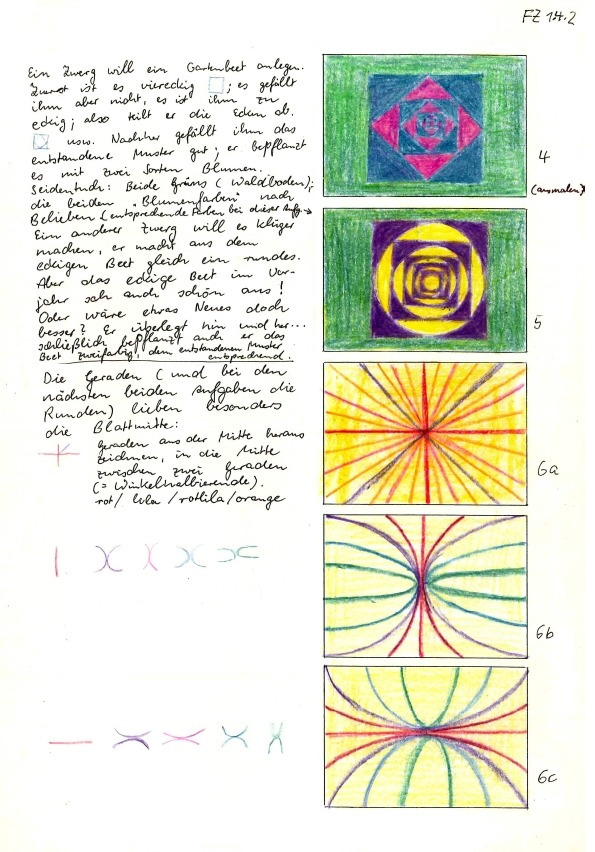 FZ 14.2
Ein Zwerg will ein Gartenbeet anlegen.
Zuerst ist es viereckig ; es gefällt
ihm aber nicht, es ist ihm zu
eckig; also teilt er die Ecken ab.
usw. Nachher gefällt ihm das
entstandene Muster gut; er bepflanzt
es mit zwei Sorten Blumen.
Seidentuch: Beide Grüns (Waldboden);
die beiden "Blumenfarben" nach
Belieben (entsprechende Farben bei dieser Aufg.
Ein anderer Zwerg will es klüger
machen, er macht aus dem
eckigen Beet gleich ein rundes.
Aber das eckige Beet im Vor-
jahr sah auch schön aus!
Oder wäre etwas Neues doch
besser? Er überlegt hin und her...
schließlich bepflanzt auch er das
Beet zweifarbig, dem entstandenen Muster
entsprechend.
Die Geraden (und bei den
nächsten beiden Aufgaben die
Runden) lieben besonders
die Blattmitte:
Geraden aus der Mitte heraus
zeichnen, in die Mitte
zwischen zwei Geraden
(= Winkelhalbierende).
rot/ lila /rotlila/orange
4
(ausmalen)
5
6a
6b
6c